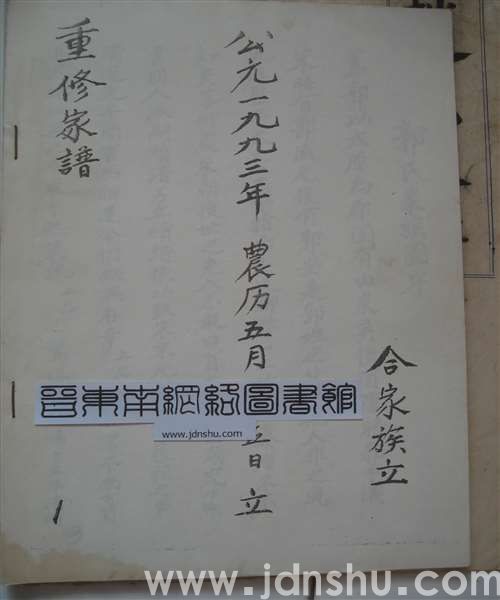 合家族立
公元一九九三年 農历五月 五日立
重修家譜
1
晋東南網絡圖書館
www.jdnshu.com
www.jdnshu.com